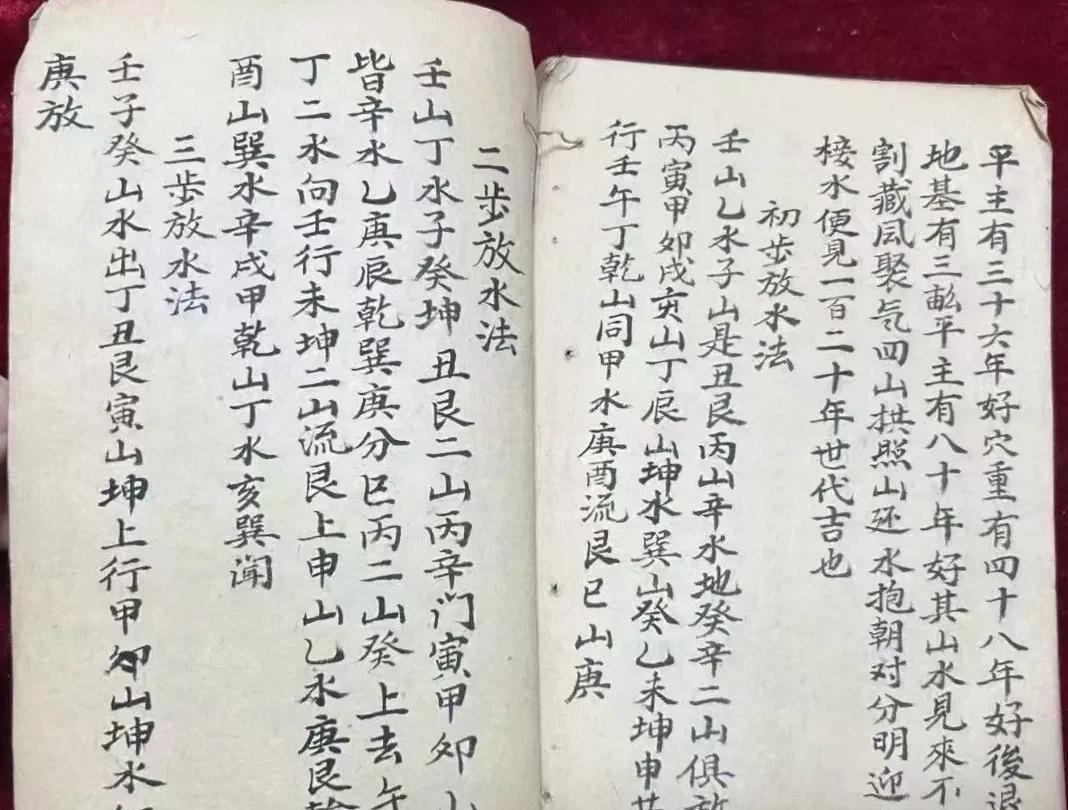 平主有三十六年好穴重有四十八年好後退
地基有三畝平主有八十年好其山水見來不
割藏風聚气四山拱照山还水抱朝对分明迎
接水便見一百二十年世代吉也
初步放水法
壬山乙水子山是丑艮丙山辛水地癸辛二山俱
丙寅甲夘戌亥山丁辰山坤水巽山癸乙未坤申
行壬午丁乾山同甲水庚酉流艮巳山庚
二步放水法
壬山丁水子癸坤丑艮二山丙辛门寅甲夘山
皆辛水乙庚辰乾巽庚分巳丙二山癸上去午
丁二水向壬行未坤二山流艮上申山乙水庚艮
酉山巽水辛戌甲乾山丁水亥巽
三步放水法
壬子癸山水出丁丑艮寅山坤上行甲夘山坤水
庚放